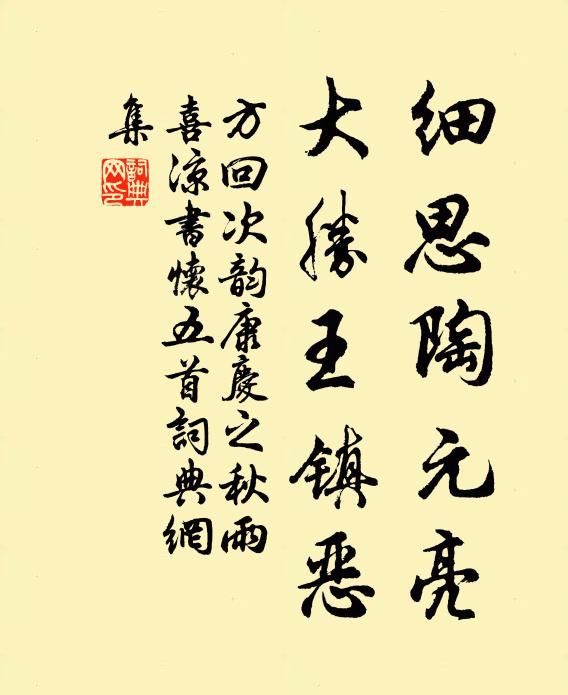 细思陶元亮
大勝王镇恶
方回次韵康慶之秋雨
喜凉書懷五首詞典網
集
詞典
网印